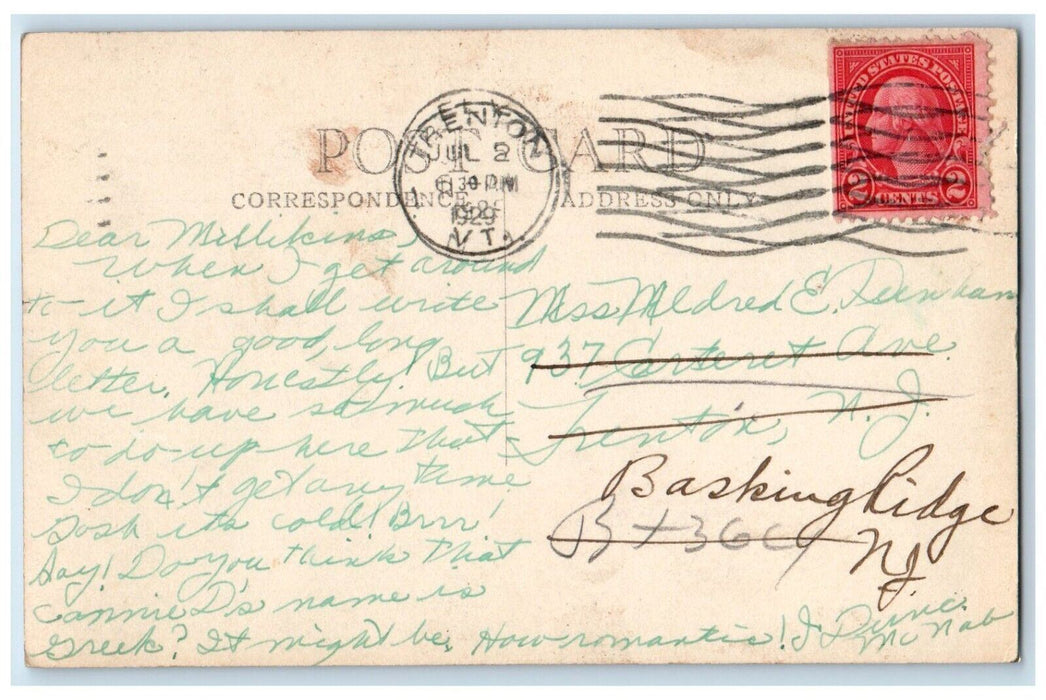 POST CARD
CORRESPONDENCE ADDRESS ONLY
TRENTON
JUL 2
6 30 PM
1929
UNITED STATES POSTAGE
2 CENTS 2
Dear Millikins,
When I get around
to it I shall write
you a good, long
letter. Honestly! But
we have so much
to do up here that
I don't get any time
Gosh its cold! Brrr!
Say! Do you think that
Cannie D's name is
Greek? It might be. How romantic!
Mc Nab
Miss Mildred E. Denham
937 Carteret Ave.
Trenton, N. J.
Basking Ridge
NJ.